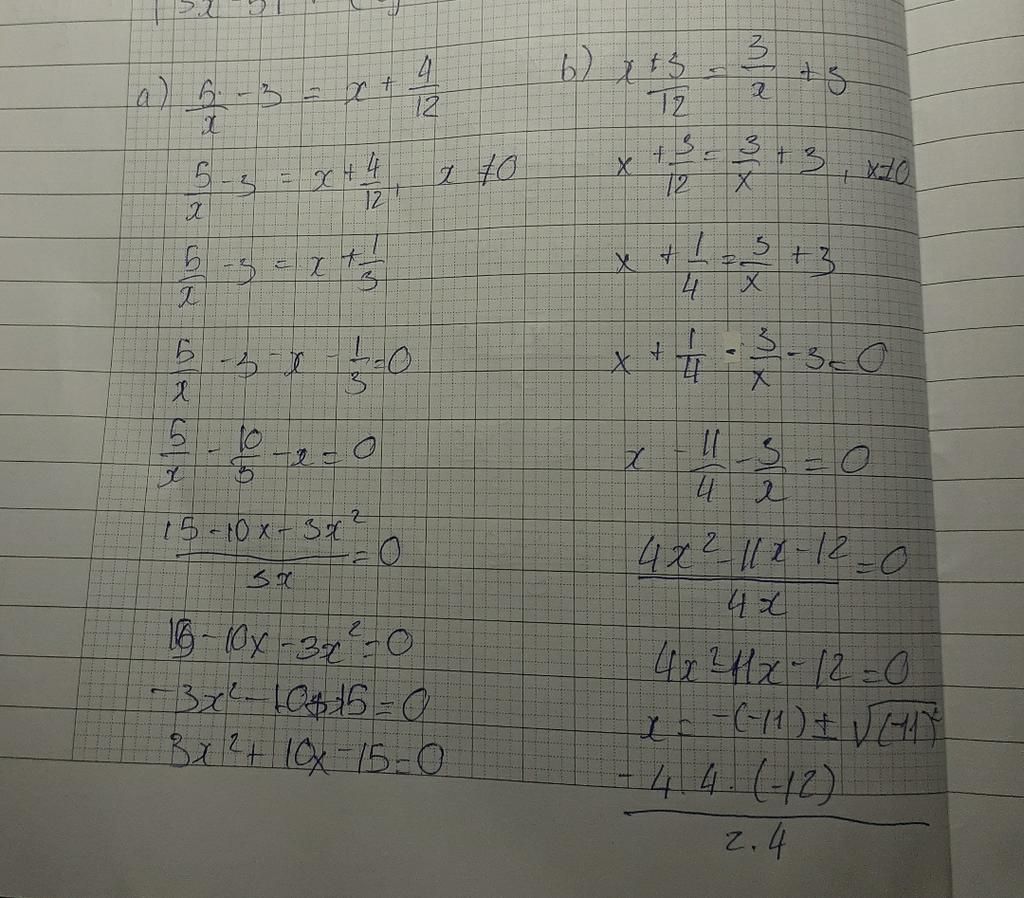 a) 5/x - 3 = x + 4/12
5/x - 3 = x + 4/12, x ≠ 0
5/x - 3 = x + 1/3
5/x - 3 - x - 1/3 = 0
5/x - 10/3 - x = 0
(15 - 10x - 3x²)/3x = 0
15 - 10x - 3x² = 0
-3x² - 10x + 15 = 0
3x² + 10x - 15 = 0
b) x + 3/12 = 3/x + 3
x + 3/12 = 3/x + 3, x ≠ 0
x + 1/4 = 3/x + 3
x + 1/4 - 3/x - 3 = 0
x - 11/4 - 3/x = 0
(4x² - 11x - 12)/4x = 0
4x² - 11x - 12 = 0
x = -(-11) ± √(-11)²
- 4 . 4 . (-12)
2 . 4